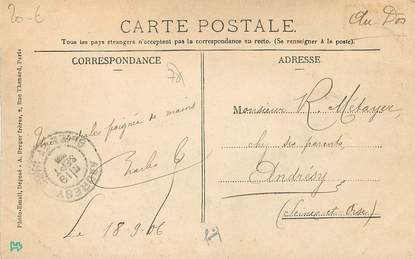 20-E
Au Dos
CARTE POSTALE.
Tous les pays étrangers n'acceptent pas la correspondance au recto. (Se renseigner à la poste).
CORRESPONDANCE
78
poignée de mains
Charles G
Le 18/9/06
ADRESSE
Monsieur R. Metayer,
chez ses parents,
Andrésy
(Seine-et-Oise)
Photo-Email, Déposé - A. Breger frères, 9, Rue Thénard, Paris
ANDRESY